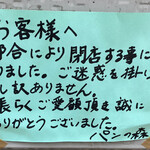 お客様へ
都合により閉店する事に
りました。ご迷惑を掛け
し訳ありません。
長らくご愛顧頂き誠に
りがとうございました。
パンの森